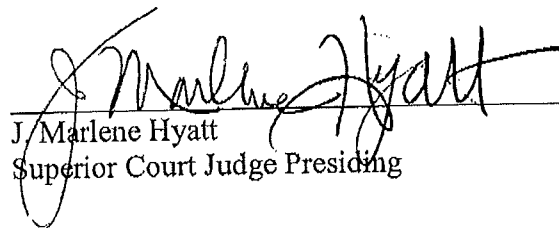 J. Marlene Hyatt
J. Marlene Hyatt
Superior Court Judge Presiding